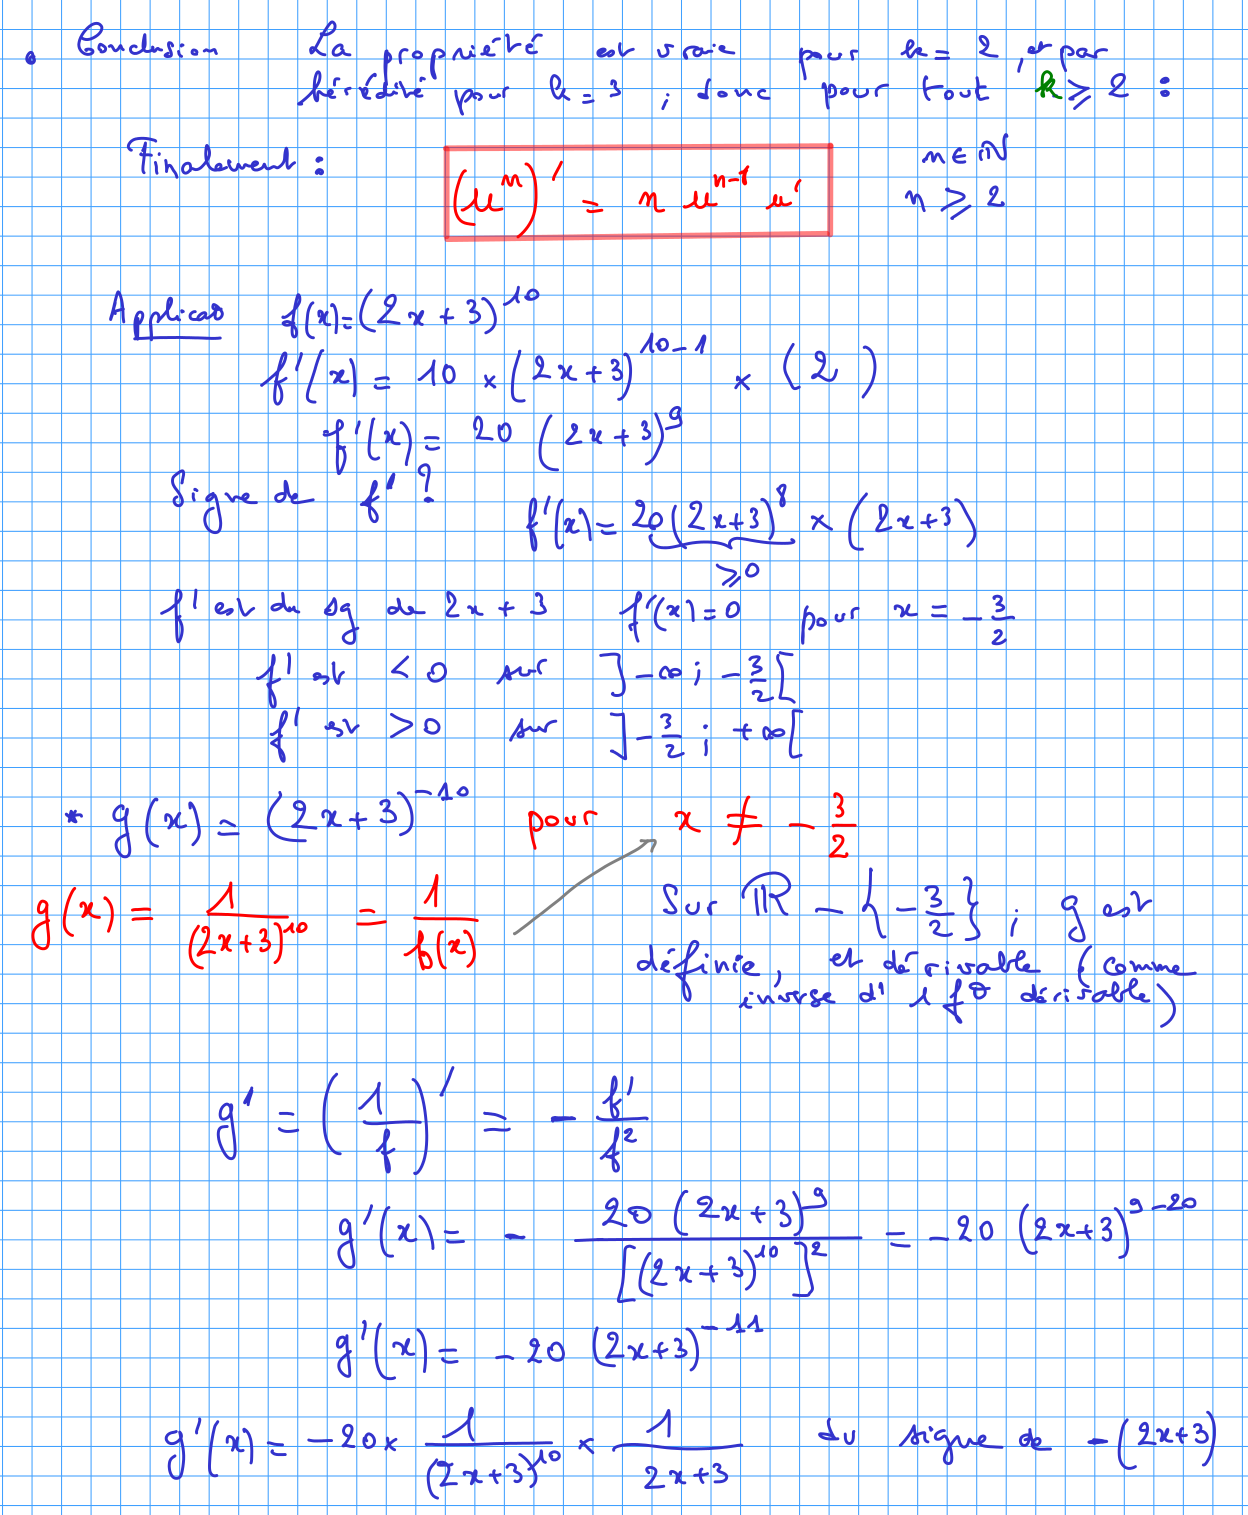 • Conclusion La propriété est vraie pour k = 2, et par
hérédité pour k = 3, donc pour tout k ⩾ 2 :
Finalement : (uⁿ)' = n uⁿ⁻¹ u' n ∈ ℕ
n ⩾ 2
Applicat° f(x) = (2x+3)¹⁰
f'(x) = 10 × (2x+3)¹⁰⁻¹ × (2)
f'(x) = 20 (2x+3)⁹
Signe de f' ?
f'(x) = 20(2x+3)⁸ × (2x+3)
⩾ 0
f' est du sg de 2x + 3 f'(x) = 0 pour x = -3/2
f' est < 0 sur ]-∞ ; -3/2[
f' est > 0 sur ]-3/2 ; +∞[
* g(x) = (2x+3)⁻¹⁰ pour x ≠ -3/2
g(x) = 1/(2x+3)¹⁰ = 1/f(x)
Sur ℝ - {-3/2} ; g est
définie, et dérivable (comme
inverse d' 1 f° dérivable)
g' = (1/f)' = - f'/f²
g'(x) = - 20 (2x+3)⁹/[(2x+3)¹⁰]² = -20 (2x+3)⁹⁻²⁰
g'(x) = -20 (2x+3)⁻¹¹
g'(x) = -20 × 1/(2x+3)¹⁰ × 1/2x+3 du signe de -(2x+3)